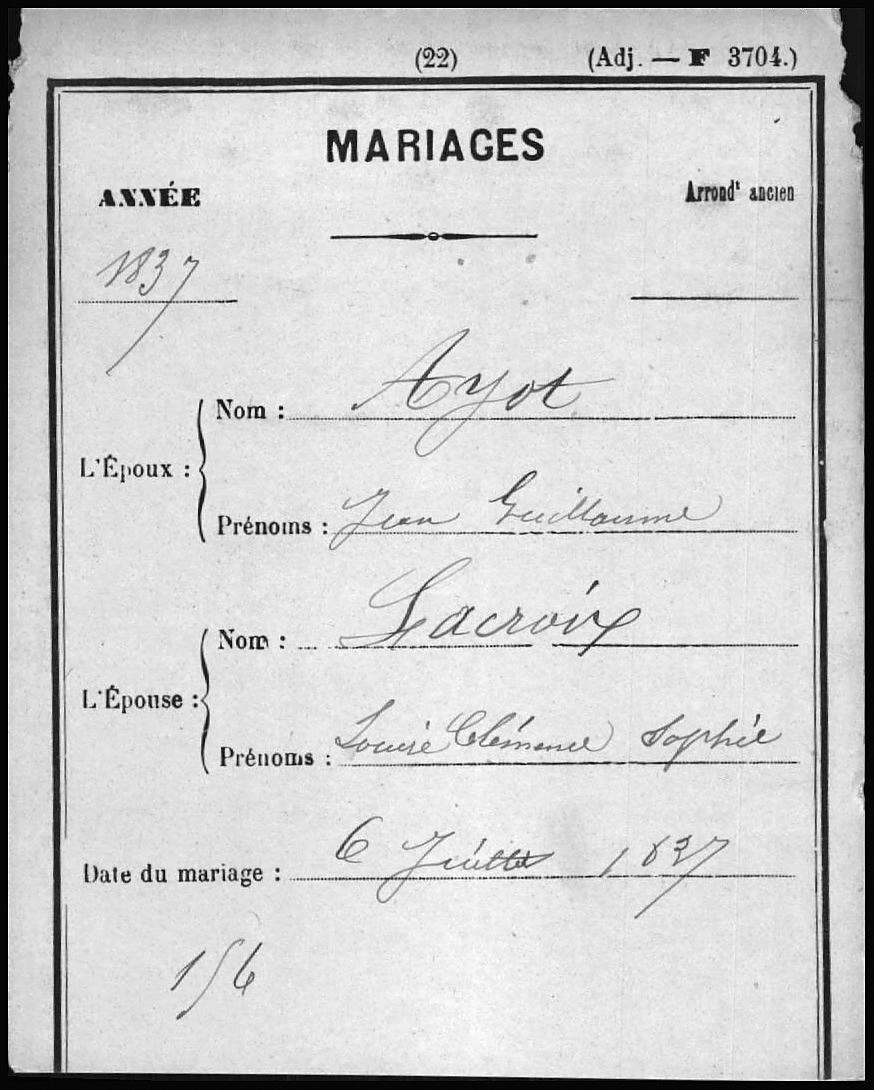 (22) (Adj. — F 3704.)
MARIAGES
ANNÉE Arrondt ancien
1837
Nom : Ayot
L'Époux :
Prénoms : Jean Guillaume
Nom : Lacroix
L'Épouse :
Prénoms : Louise Clémence Sophie
Date du mariage : 6 Juillet 1837
156